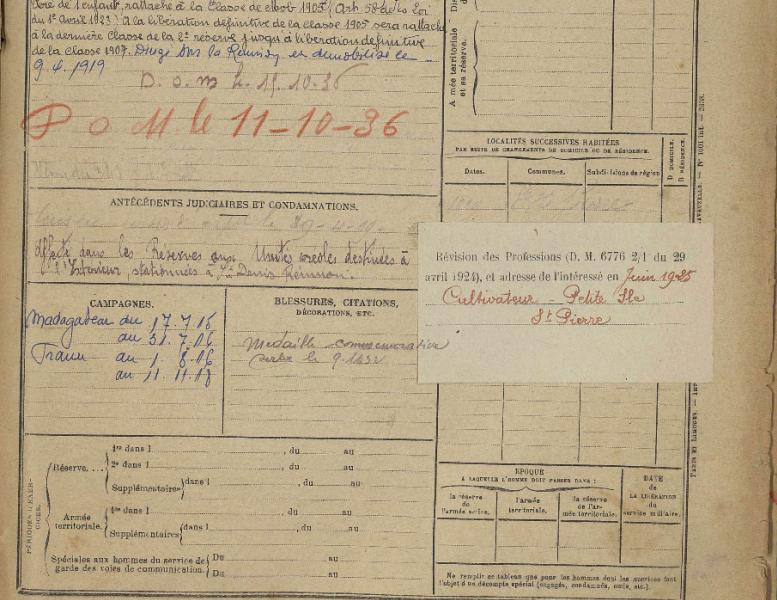 Père de 1 enfant, rattaché à la Classe de 1905 (Art. 58 de la Loi
du 1er avril 1923) A la libération définitive de la classe 1905 sera rattaché
à la dernière Classe de la 2e réserve jusqu'à libération définitive
de la Classe 1907. Dirigé sur la Réunion et démobilisé le
9.4.1919
D. O. M le 15.10-36
P O M. le 11-10-36
ANTÉCÉDENTS JUDICIAIRES ET CONDAMNATIONS.
Affecté dans les Réserves aux Unités créoles destinées à
l'Extérieur, stationnées à St Denis Réunion.
CAMPAGNES.
Madagascar du 17.7.15
au 31.7.16
France au 1. 8.16
au 11.11.18
BLESSURES, CITATIONS,
DÉCORATIONS, ETC.
Médaille commémorative
Armée territoriale
et sa réserve.
LOCALITÉS SUCCESSIVES HABITÉES
PAR SUITE DE CHANGEMENTS DE DOMICILE OU DE RÉSIDENCE.
Dates.
Communes.
Subdivisions de région
D DOMICILE.
R RÉSIDENCE.
Révision des Professions (D. M. 6776 2/1 du 29
avril 1924), et adresse de l'intéressé en Juin 1925
Cultivateur - Petite Ile
St Pierre
PÉRIODES D'EXERCICES.
Réserve. ...
1re dans l , du au
2e dans l , du au
Supplémentaires dans l , du au
Armée
territoriale.
dans l , du au
Supplémentaires dans l , du au
Spéciales aux hommes du service de
garde des voies de communication.
Du au
Du au
ÉPOQUE
A LAQUELLE L'HOMME DOIT PASSER DANS :
la réserve
de
l'armée active.
l'armée
territoriale.
la réserve
de l'ar-
mée territoriale.
DATE
de
LA LIBÉRATION
du
service militaire.
Ne remplir ce tableau que pour les hommes dont les services font
l'objet d'un décompte spécial (engagés, condamnés, omis, etc.).